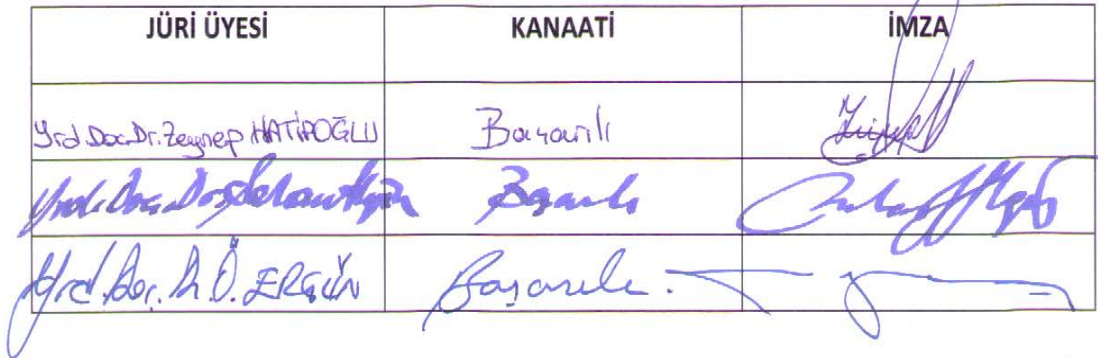 JÜRİ ÜYESİ KANAATİ İMZA
Yrd.Doc.Dr. Zeynep HATİPOĞLU Başarılı
Yrd. Doç. Dr. Başarılı
Yrd. Doç. Dr. Ö. ERGÜN Başarılı.